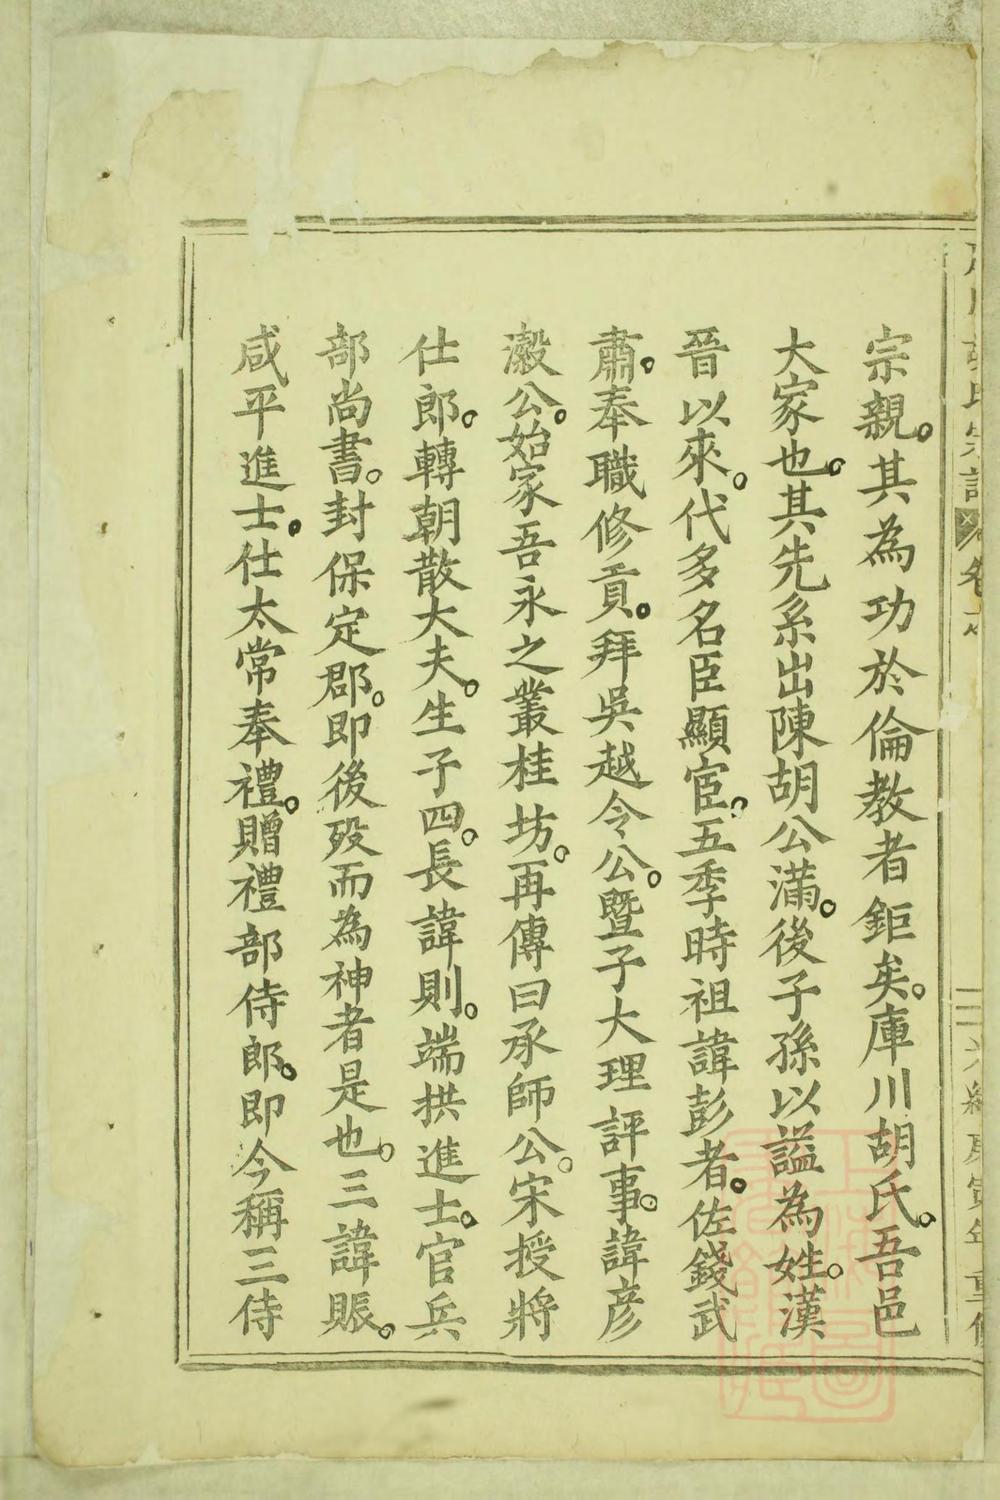 宗親。其為功於倫教者鉅矣。庫川胡氏。吾邑
大家也。其先系出陳胡公滿。後子孫以謚為姓。漢
晉以來。代多名臣顯宦。五季時祖諱彭者。佐錢武
肅。奉職修貢。拜吳越令公。暨子大理評事。諱彦
瀫公。始家吾永之叢桂坊。再傳曰承師公。宋授將
仕郎。轉朝散大夫。生子四。長諱則。端拱進士。官兵
部尚書。封保定郡。即後歿而為神者是也。三諱賑。
咸平進士。仕太常奉禮。贈禮部侍郎。即今稱三侍
胡氏宗譜 卷之
庚寅年重修